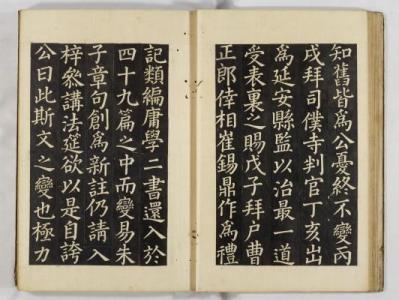 知舊皆爲公憂終不變丙
戌拜司僕寺判官丁亥出
爲延安縣監以治最一道
受表裏之賜戊子拜户曹
正郎倖相崔錫鼎作爲禮
記類編庸學二書還入於
四十九篇之中而變易朱
子章句創爲新註仍請入
梓叅講法筵欲以是自誇
公曰此斯文之變也極力